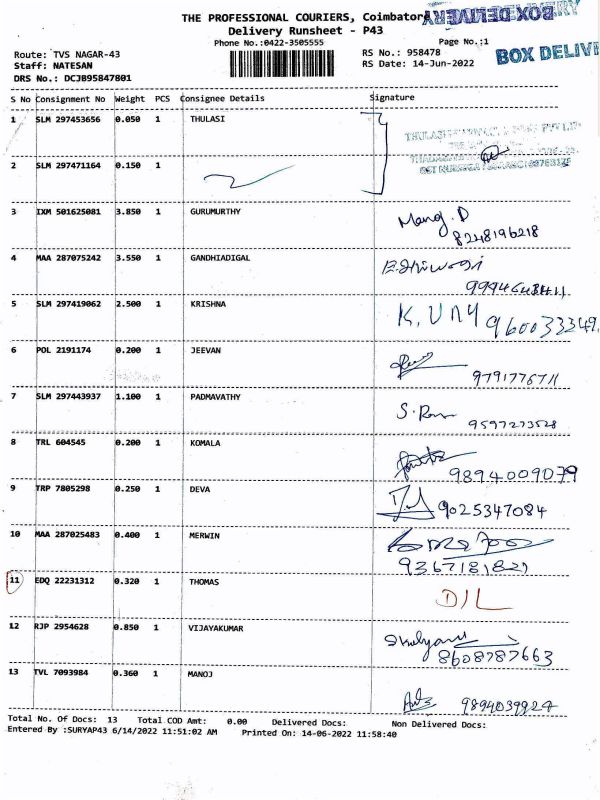 THE PROFESSIONAL COURIERS, Coimbatore
BOX DELIVERY
Delivery Runsheet - P43
Phone No.:0422-3505555
Page No.:1
BOX DELIV
Route: TVS NAGAR-43
RS No.: 958478
Staff: NATESAN
RS Date: 14-Jun-2022
DRS No.: DCJB95847801
S No Consignment No Weight PCS Consignee Details Signature
1 SLM 297453656 0.050 1 THULASI
2 SLM 297471164 0.150 1
3 IXM 501625081 3.850 1 GURUMURTHY
Mang.D
8248196218
4 MAA 287075242 3.550 1 GANDHIADIGAL
5 SLM 297419062 2.500 1 KRISHNA
960033349
6 POL 2191174 0.200 1 JEEVAN
9791776711
7 SLM 297443937 1.100 1 PADMAVATHY
9597273528
8 TRL 604545 0.200 1 KOMALA
9894009079
9 TRP 7805298 0.250 1 DEVA
9025347084
10 MAA 287025483 0.400 1 MERWIN
9367181821
11 EDQ 22231312 0.320 1 THOMAS
D/L
12 RJP 2954628 0.850 1 VIJAYAKUMAR
8608787663
13 TVL 7093984 0.360 1 MANOJ
9894039924
Total No. Of Docs: 13 Total COD Amt: 0.00 Delivered Docs: Non Delivered Docs:
Entered By :SURYAP43 6/14/2022 11:51:02 AM Printed On: 14-06-2022 11:58:40